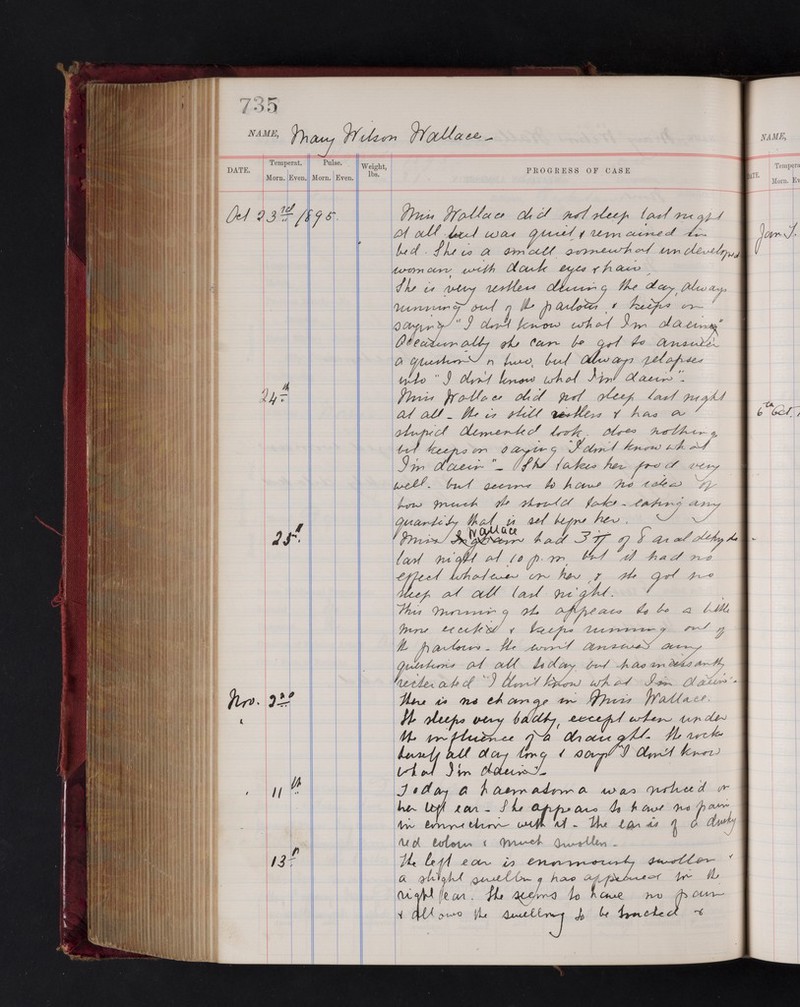 735
NAME, Mary Wilson Wallace -
DATE. Temperat. Pulse. Weight, lbs. PROGRESS OF CASE
Morn. Even. Morn. Even.
Oct 23rd 1895. Miss Wallace did not sleep last night
at all but was quiet & remained in
bed. She is a small somewhat undeveloped
woman, with dark eyes & hair.
She is very restless during the day, always
running out of the parlour & keeps on
saying "I don't know what I'm daeing"
Occasionally she can be got to answer
a question or two, but always relapses
into "I don't know what I'm daein".
24th Miss Wallace did not sleep last night
at all - She is still restless & has a
stupid demented look, does nothing
but keeps on saying "I don't know what
I'm daein" - She takes her food very
well. but seems to have no idea of
how much she should take - eating any
quantity that is set before her.
25th Miss Wallace had 3ii of Paraldehyde
last night at 10 p.m. but it had no
effect whatever on her, & she got no
sleep at all last night.
This morning she appears to be a little
more excited & keeps running out of
the parlours - She won't answer any
questions at all today but has incessantly
reiterated "I don't know what I'm daein" -
Nov. 2nd There is no change in Miss Wallace.
She sleeps very badly, except when under
the influence of a draught. She rocks
herself all day long & says "I don't know
what I'm daein" -
11th Today a haematoma was noticed on
her left ear - She appears to have no pain
in connection with it - The ear is of a dusky
red colour & much swollen -
13th The left ear is enormously swollen &
a slight swelling has appeared in the
right ear. She seems to have no pain
& allows the swelling to be touched &
NAME,
Tempera
Morn. Ev
Jan. 7.
6th Oct.